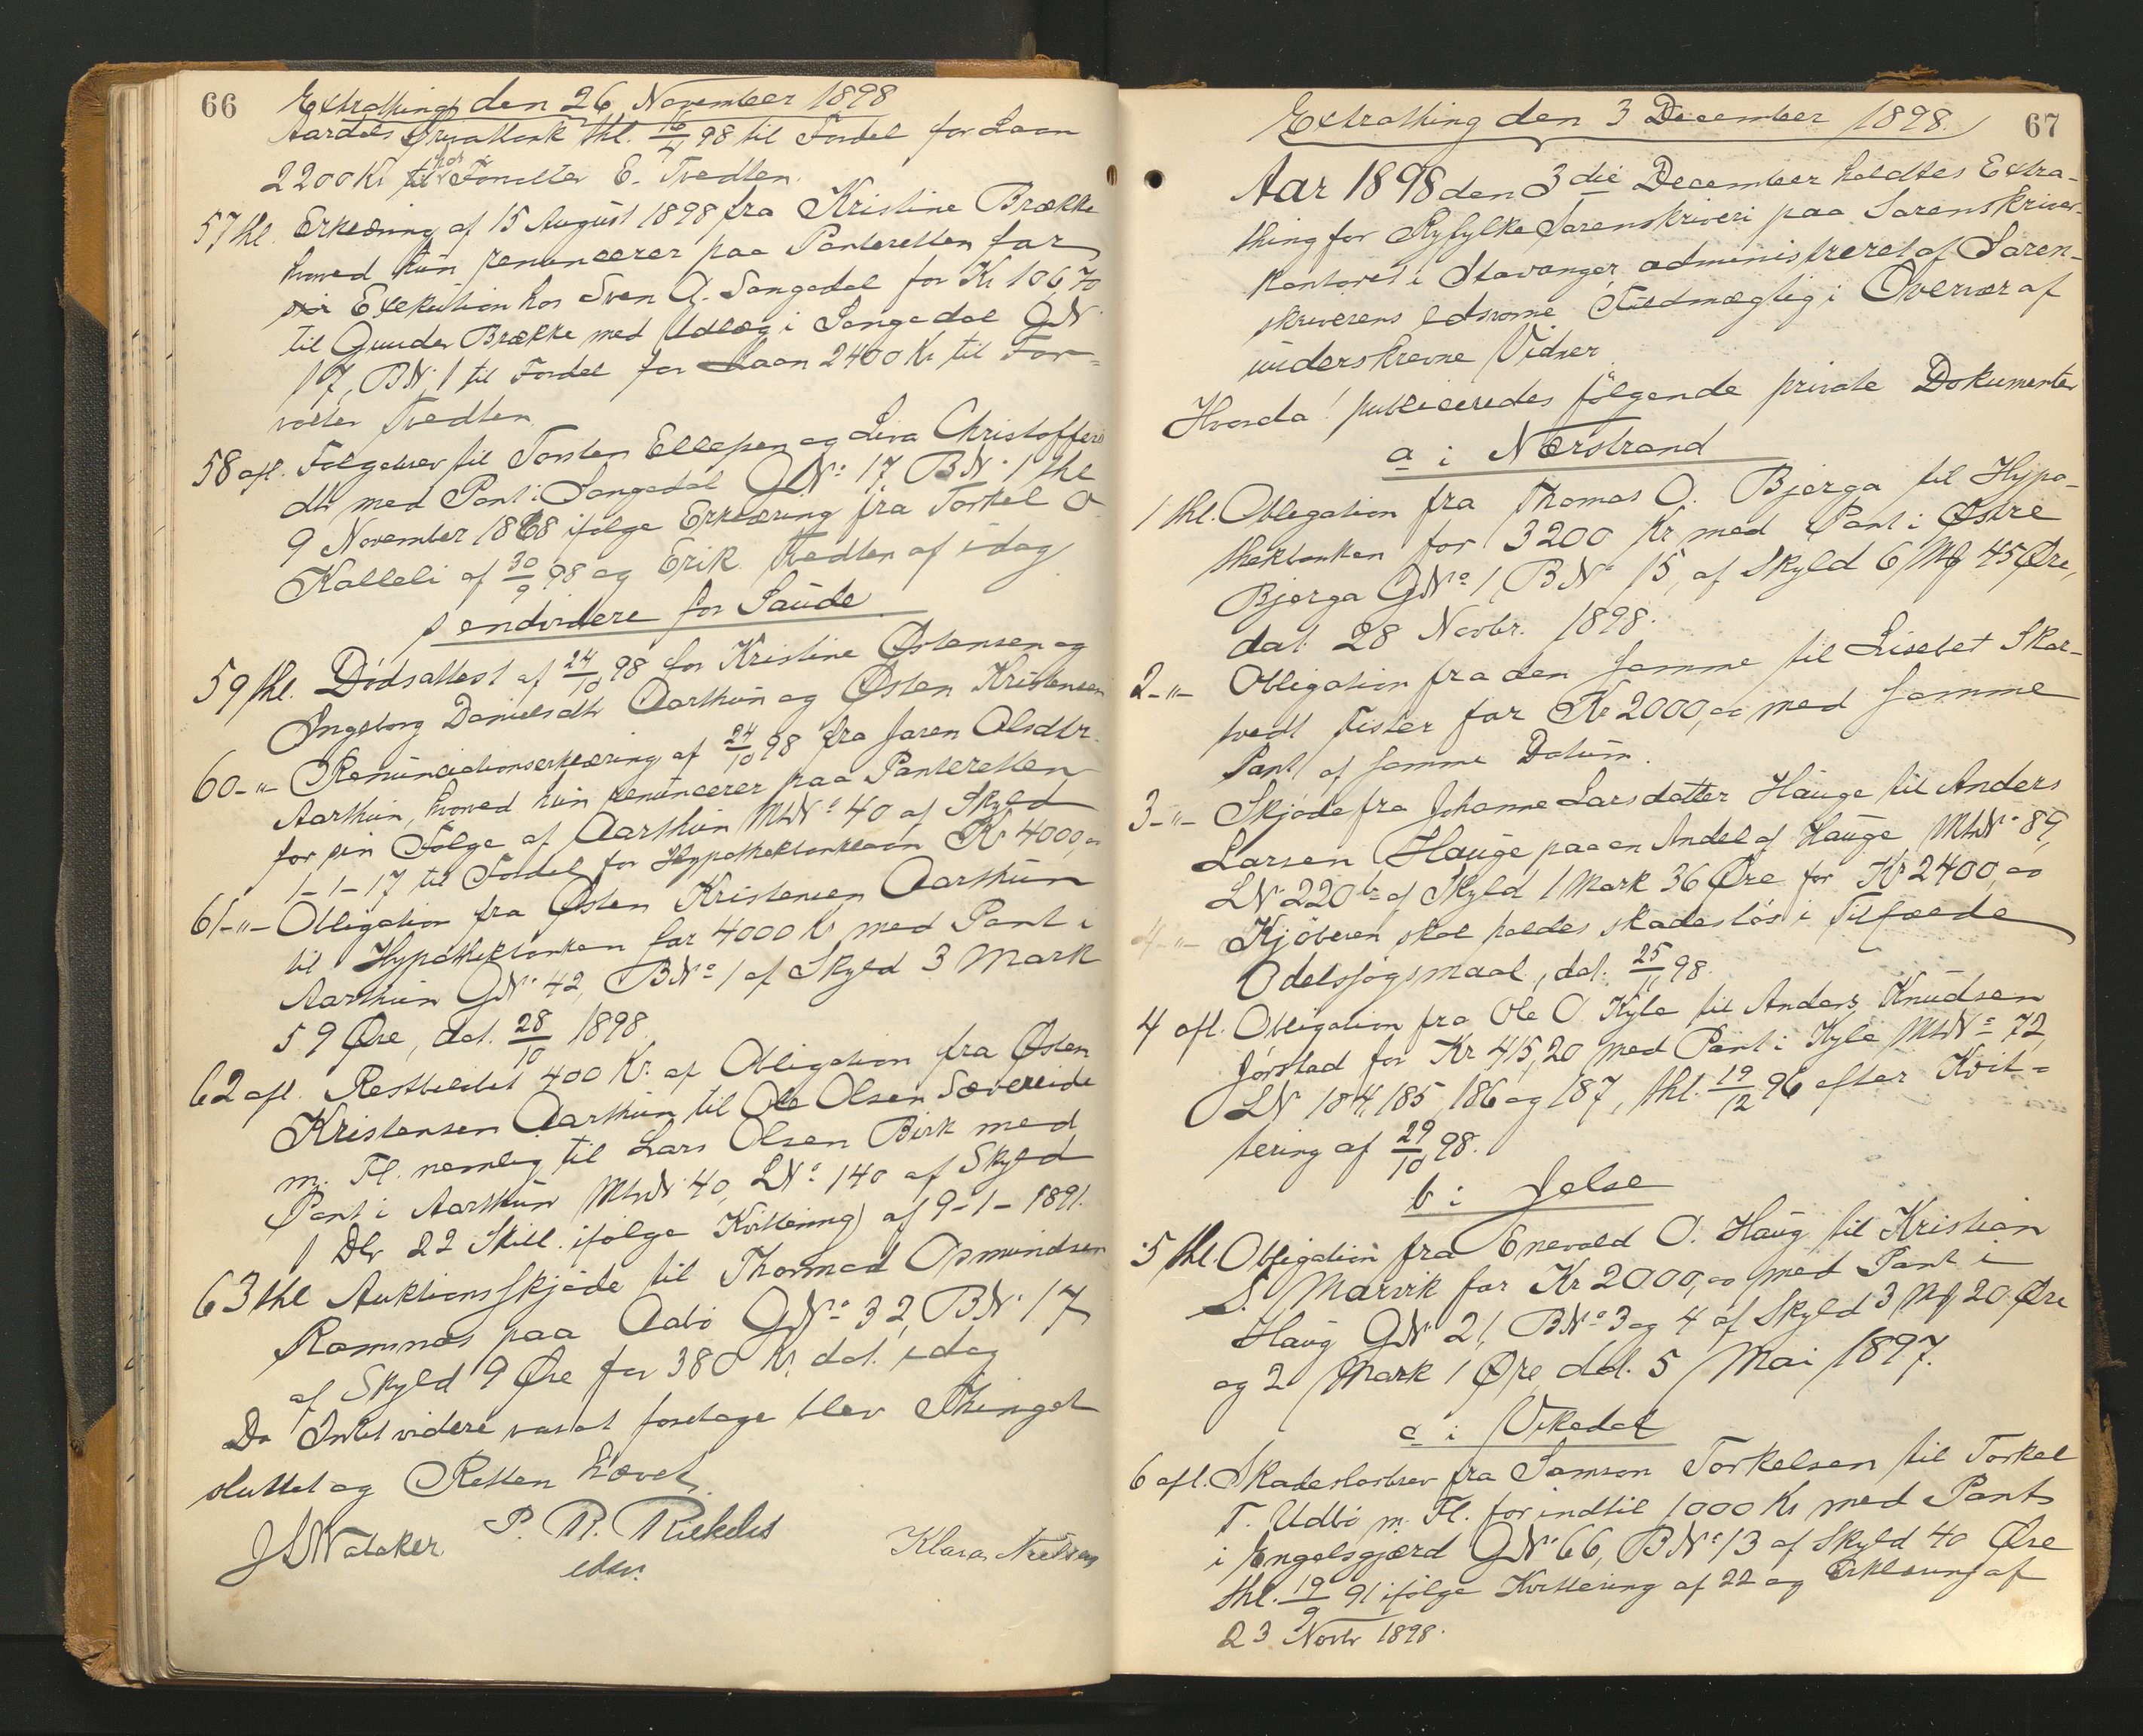 66 Extrathing den 26 November 1898
Aardals Privatbank thl. 98 til Fordel for Laan
2200 Kr til for Forvalter E. Tvedten.
57 thl. Erklæring af 15 August 1898 fra Kristine Brække
hvorved hun renuncerer paa Panteretten for
sin Exekution hos Sven G. Sangedal for Kr 106,70
til Gunder Brække med Udlæg i Sangedal GN.
17, BN. 1 til Fordel for Laan 2400 Kr til For=
valter Tvedten
58 afl. Følgebrev til Torsten Ellefsen og Siva Christoffers
dtr med Pant i Sangedal GN: 17 BN. 1 thl
9 November 1868 ifølge Erklæring fra Torkel O
Kalleli af 30/9 98 og Erik Tvedten af idag
p endvidere for Saude
59 thl. Dødsattest af 24/10 98 for Kristine Østensen og
Ingeborg Danielsdtr Aarthun og Østen Kristensen
60-"- Renunciationserklæring af 24/10 98 fra Jaren Olsdtr.
Aarthun, hvorved hun renuncerer paa Panteretten
for sin Følge af Aarthun MtrN: 40 af Skyld
1-1-17 til Fordel for Hypothekbanklaan Kr 4000,00
61-"- Obligation fra Østen Kristensen Aarthun
til Hypothekbanken for 4000 Kr med Pant i
Aarthun GN. 42, BN: 1 af Skyld 3 Mark
59 Øre, dat. 28/10 1898.
62 afl. Restbeløbet 400 Kr. af Obligation fra Østen
Kristensen Aarthun til Ole Olsen Sævereide
m. Fl. nemlig til Lars Olsen Birk med
Pant i Aarthun MtrN. 40, LN: 140 af Skyld
1 Dlr 22 Skill. ifølge Kvittering af 9-1-1891.
63 thl Auktionsskjøde til Thormod Osmundsen
Ramnæs paa Aabø GN: 32, BN. 17
af Skyld 9 Øre for 380 Kr. dat. idag
Da Intet videre var at foretage blev Thinget
sluttet og Retten hævet.
P. R. Rickels
edsv.
Klara Nielsen
Extrathing den 3 December 1898. 67
Aar 1898 den 3die December holdtes Extra-
thing for Ryfylke Sorenskriveri paa Sorenskriver-
kontoret i Stavanger, administreret af Soren-
skriverens edsvorne Fuldmægtig i Overvær af
underskrevne Vidner
Hvorda! publiceredes følgende private Dokumenter
a i Nærstrand
1 thl. Obligation fra Thomas O. Bjerga til Hypo-
thekbanken for 3200 Kr med Pant i Østre
Bjerga GN: 1, BN: 15, af Skyld 6 Mk 45 Øre,
dat. 28 Novbr. 1898.
2-"- Obligation fra den samme til Lisebet Skar-
tvedt Tister for Kr 2000,00 med samme
Pant af samme Datum.
3-"- Skjøde fra Johanne Larsdatter Hauge til Anders
Larsen Hauge paa en Andel af Hauge MtrN: 89,
LN 220b af Skyld 1 Mark 36 Øre for Kr 2400,00
4-"- Kjøberen skal holdes skadesløs i Tilfælde
Odelssøgsmaal, dat. 25/11 98.
4 afl. Obligation fra Ole O. Kyle til Anders Knudsen
Jørstad for Kr 415,20 med Pant i Kyle MtrN: 72,
LN 184, 185, 186 og 187, thl. 19/12 96 efter Kvit=
tering af 29/10 98.
b i Jelse
5 thl. Obligation fra Enevald O. Haug til Kristian
S. Marvik for Kr 2000,00 med Pant i
Haug GN 21, BN: 3 og 4 af Skyld 3 Mk 20 Øre
og 2 Mark 1 Øre, dat. 5 Mai 1897.
c i Vikedal
6 afl. Skadesløsbrev fra Samson Torkelsen til Torkel
T. Udbø m. Fl. for indtil 1000 Kr med Pant
i Engelsgjærd GN. 66, BN: 13 af Skyld 40 Øre
thl. 19/9 91 ifølge Kvittering af 22 og Erklæring af
23 Novbr 1898.